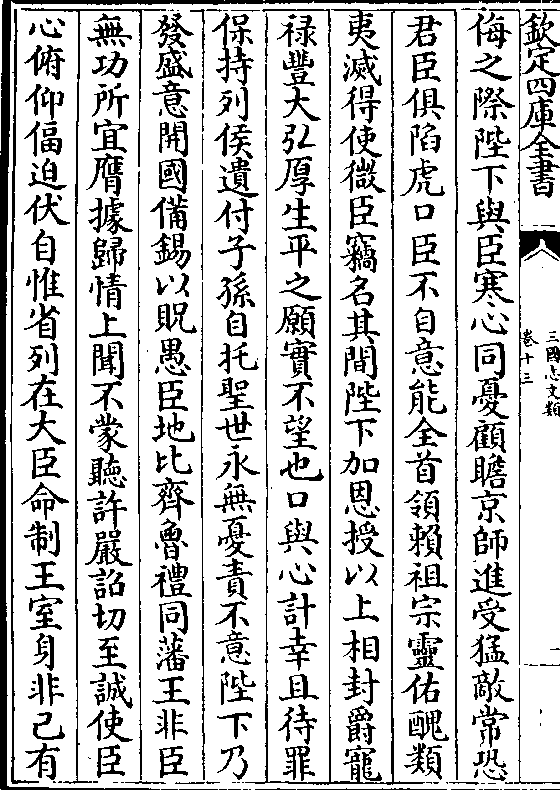 欽定四庫全書
三國志文類
卷十三
一
侮之際陛下與臣寒心同憂顧瞻京師進受猛敵常恐
君臣俱陷虎口臣不自意能全首領賴祖宗靈佑醜類
夷滅得使微臣竊名其間陛下加恩授以上相封爵寵
禄豐大弘厚生平之願實不望也口與心計幸且待罪
保持列侯遺付子孫自托聖世永無憂責不意陛下乃
發盛意開國備錫以貺愚臣地比齊魯禮同藩王非臣
無功所宜膺據歸情上聞不蒙聽許嚴詔切至誠使臣
心俯仰偪迫伏自惟省列在大臣命制王室身非己有